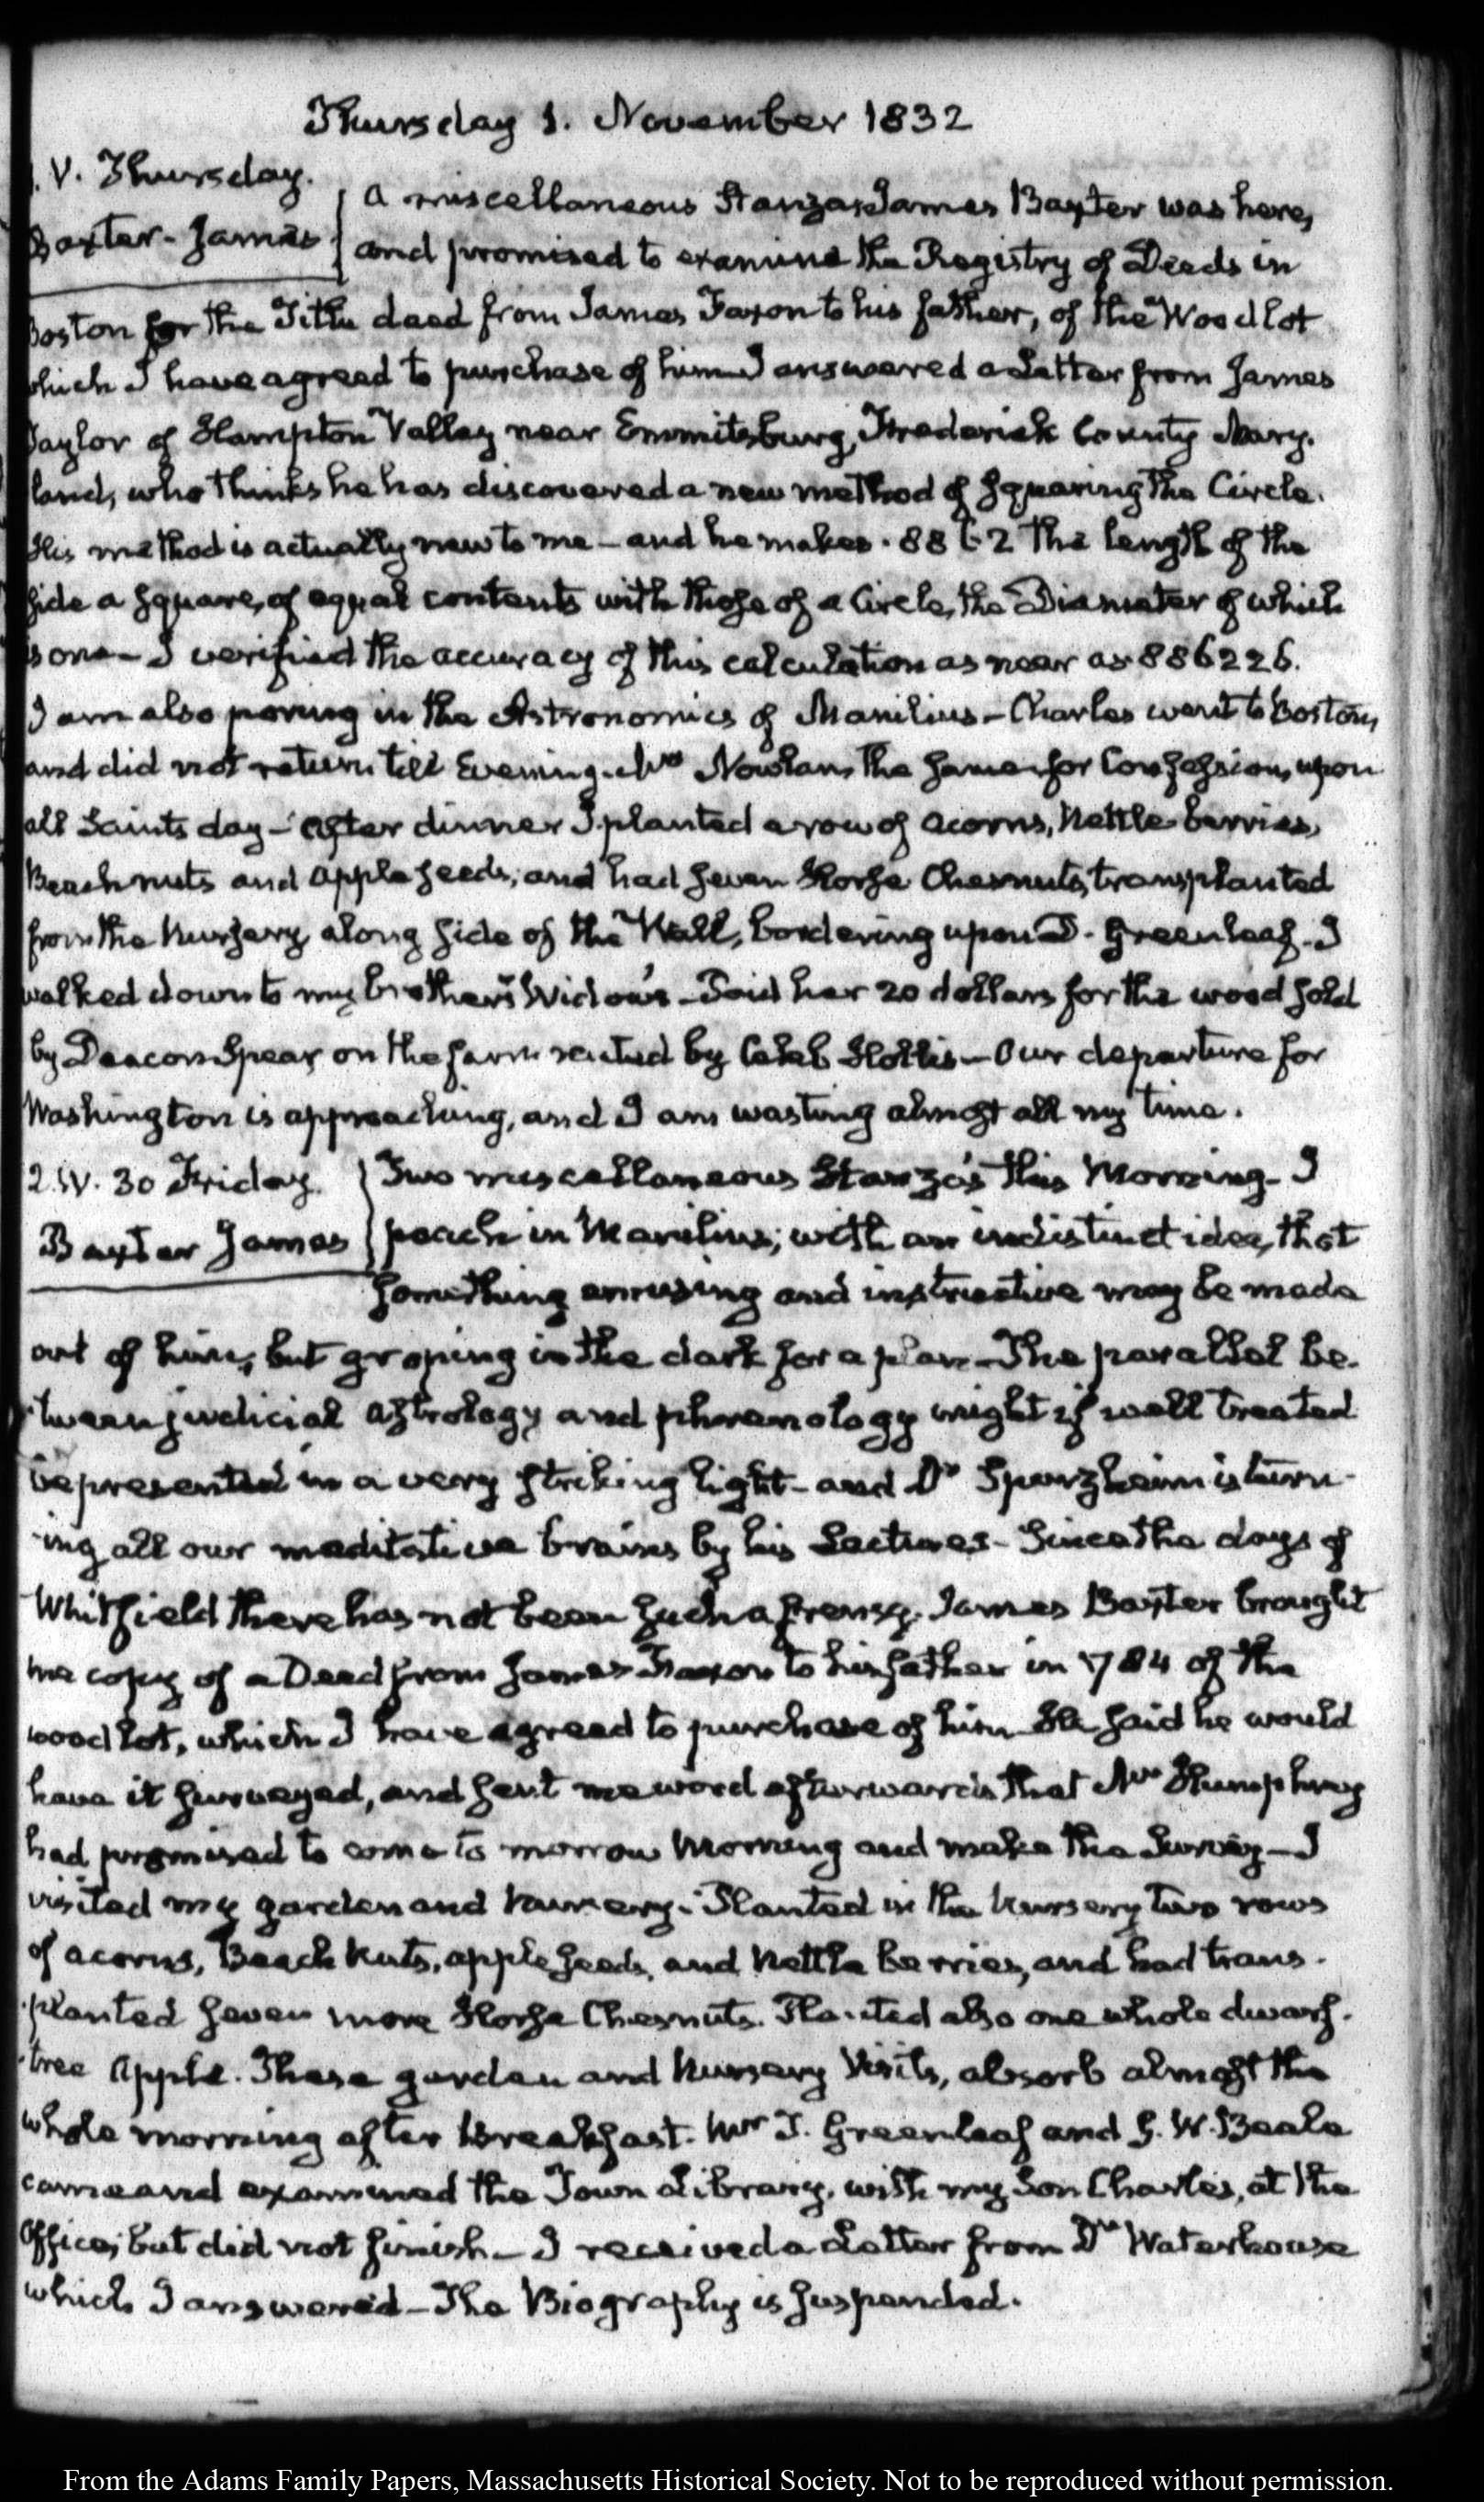 Thursday 1. November 1832
1. V. Thursday.
Baxter - James
A miscellaneous Stanza. James Baxter was here,
and promised to examine the Registry of Deeds in
Boston for the Title deed from James Faxon to his father, of the Wood lot
which I have agreed to purchase of him. I answered a Letter from James
Taylor of Hampton Valley near Emmitsburg, Frederick County Mary-
land, who thinks he has discovered a new method of squaring the Circle.
His method is actually new to me – and he makes .8862 the length of the
side a square, of equal contents with those of a Circle, the Diameter of which
is one – I verified the accuracy of this calculation as near as 886226.
I am also poring in the Astronomics of Manilius – Charles went to Boston,
and did not return till Evening. Mrs Nowlan, the same for Confession, upon
all Saints day – After dinner I planted a row of acorns, Nettle berries,
Beach nuts and apple seeds; and had seven Horse Chesnuts, transplanted
from the Nursery, along side of the Wall, bordering upon D. Greenleaf. I
walked down to my brother's Widow's – Paid her 20 dollars for the wood sold
by Deacon Spear, on the farm rented by Caleb Hollis – Our departure for
Washington is approaching, and I am wasting almost all my time.
2. IV. 30 Friday.
Baxter James
Two miscellaneous Stanza's this Morning – I
poach in Manilius; with an indistinct idea, that
something amusing and instructive may be made
out of him, but groping in the dark for a plan – The parallel be-
tween judicial astrology and phrenology might if well treated
be presented in a very striking light – and Dr Spurzheim is turn-
ing all our meditative brains by his Lectures – Since the days of
Whitfield there has not been such a frensy. James Baxter brought
me copy of a Deed from James Faxon to his father in 1784 of the
wood lot, which I have agreed to purchase of him. He said he would
have it surveyed, and sent me word afterwards that Mr Humphrey
had promised to come to morrow Morning and make the Survey – I
visited my garden and Nursery. Planted in the Nursery two rows
of acorns, Beach Nuts, apple seeds, and Nettle berries, and had trans-
planted seven more Horse Chesnuts. Planted also one whole dwarf-
tree Apple. These garden and Nursery Visits, absorb almost the
whole morning after breakfast. Mr T. Greenleaf and G. W. Beale
came and examined the Town Library, with my Son Charles, at the
Office; but did not finish – I received a Letter from Dr Waterhouse
which I answered – The Biography is suspended.
From the Adams Family Papers, Massachusetts Historical Society. Not to be reproduced without permission.